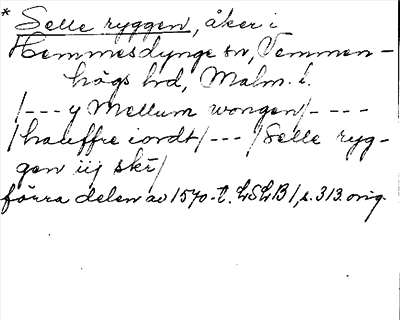 * Selle ryggen, åker i
Hemmesdynge sn, Vemmen-
högs hd, Malm. l.
/--- y Mellum wongen/----
/hauffre iordt/--- /Selle ryg-
gen iij skr/
förra delen av 1570-t. LSLB 1, s. 313. orig.